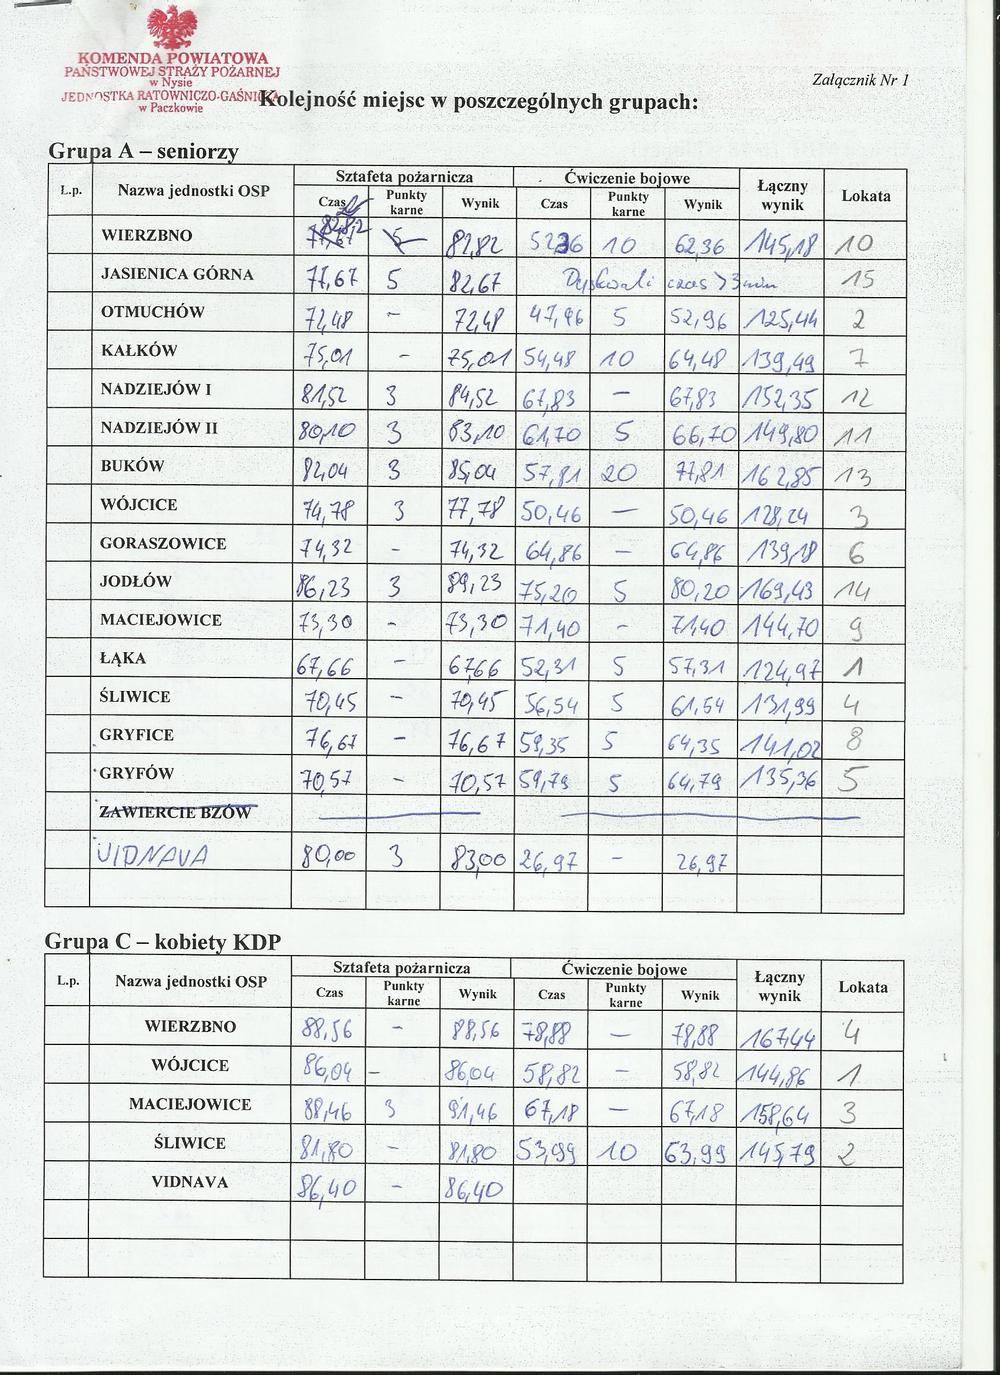 KOMENDA POWIATOWA
PAŃSTWOWEJ STRAŻY POŻARNEJ
w Nysie
JEDNOSTKA RATOWNICZO-GAŚNICZA
w Paczkowie
Załącznik Nr 1
Kolejność miejsc w poszczególnych grupach:
Grupa A – seniorzy
L.p. Nazwa jednostki OSP Sztafeta pożarnicza Ćwiczenie bojowe Łączny wynik Lokata
Czas Punkty karne Wynik Czas Punkty karne Wynik
WIERZBNO 77,67 82,82 5 82,82 52,36 10 62,36 145,18 10
JASIENICA GÓRNA 77,67 5 82,67 czas > 3 min 15
OTMUCHÓW 72,48 - 72,48 47,96 5 52,96 125,44 2
KAŁKÓW 75,01 - 75,01 54,48 10 64,48 139,49 7
NADZIEJÓW I 81,52 3 84,52 67,83 - 67,83 152,35 12
NADZIEJÓW II 80,10 3 83,10 61,70 5 66,70 149,80 11
BUKÓW 82,04 3 85,04 57,81 20 77,81 162,85 13
WÓJCICE 74,78 3 77,78 50,46 - 50,46 128,24 3
GORASZOWICE 74,32 - 74,32 64,86 - 64,86 139,18 6
JODŁÓW 86,23 3 89,23 75,20 5 80,20 169,43 14
MACIEJOWICE 73,30 - 73,30 71,40 - 71,40 144,70 9
ŁĄKA 67,66 - 67,66 52,31 5 57,31 124,97 1
ŚLIWICE 70,45 - 70,45 56,54 5 61,54 131,99 4
GRYFICE 76,67 - 76,67 59,35 5 64,35 141,02 8
GRYFÓW 70,57 - 70,57 59,79 5 64,79 135,36 5
ZAWIERCIE BZÓW
VIDNAVA 80,00 3 83,00 26,97 - 26,97
Grupa C – kobiety KDP
L.p. Nazwa jednostki OSP Sztafeta pożarnicza Ćwiczenie bojowe Łączny wynik Lokata
Czas Punkty karne Wynik Czas Punkty karne Wynik
WIERZBNO 88,56 - 88,56 78,88 - 78,88 167,44 4
WÓJCICE 86,04 - 86,04 58,82 - 58,82 144,86 1
MACIEJOWICE 88,46 3 91,46 67,18 - 67,18 158,64 3
ŚLIWICE 81,80 - 81,80 53,99 10 63,99 145,79 2
VIDNAVA 86,40 - 86,40